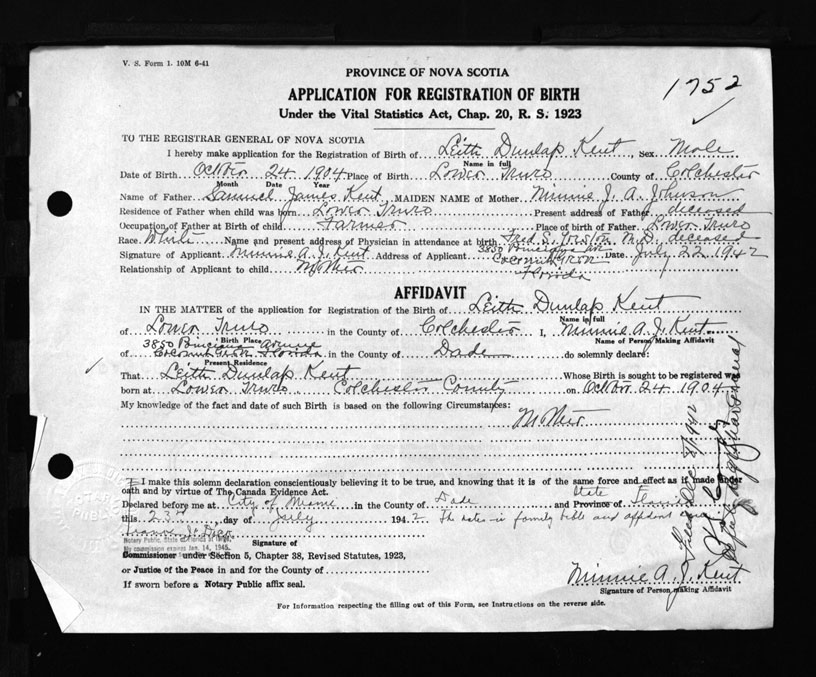 V. S. Form 1. 10M 6-41
1752
PROVINCE OF NOVA SCOTIA
APPLICATION FOR REGISTRATION OF BIRTH
Under the Vital Statistics Act, Chap. 20, R. S. 1923
TO THE REGISTRAR GENERAL OF NOVA SCOTIA
I hereby make application for the Registration of Birth of Leith Dunlap Kent, Sex Male
Name in full
Date of Birth October 24 1904 Place of Birth Lower Truro County of Colchester
Month Date Year
Name of Father Samuel James Kent MAIDEN NAME of Mother Minnie J. A. Johnson
Residence of Father when child was born Lower Truro Present address of Father deceased
Occupation of Father at Birth of child Farmer Place of birth of Father Lower Truro
Race White Name and present address of Physician in attendance at birth Fred S. M.D. deceased
Signature of Applicant Minnie A. J. Kent Address of Applicant 3850 Poinciana Av Coconut Grove Florida Date July 22 1942
Relationship of Applicant to child Mother
AFFIDAVIT
IN THE MATTER of the application for Registration of the Birth of Leith Dunlap Kent
Name in full
of Lower Truro in the County of Colchester I, Minnie A. J. Kent
Birth Place Name of Person Making Affidavit
3850 Poinciana Avenue
of Coconut Grove Florida in the County of Dade do solemnly declare:
Present Residence
That Leith Dunlap Kent Whose Birth is sought to be registered was
born at Lower Truro Colchester County on October 24 1904
My knowledge of the fact and date of such Birth is based on the following Circumstances:
Mother
I make this solemn declaration conscientiously believing it to be true, and knowing that it is of the same force and effect as if made under
oath and by virtue of The Canada Evidence Act.
Declared before me at City of Miami in the County of Dade State and Province of Florida
this 23rd day of July 1942 The dates in family bible and affidavit
Notary Public, State of Florida at large,
My commission expires Jan. 14, 1945.
Signature of
Commissioner under Section 5, Chapter 38, Revised Statutes, 1923,
or Justice of the Peace in and for the County of
If sworn before a Notary Public affix seal.
Minnie A. J. Kent
Signature of Person making Affidavit
For Information respecting the filling out of this Form, see Instructions on the reverse side.